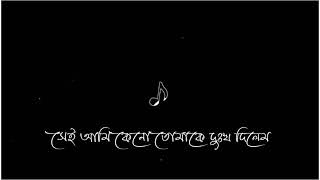 সেই আমি কেনো তোমাকে দুঃখ দিলেম